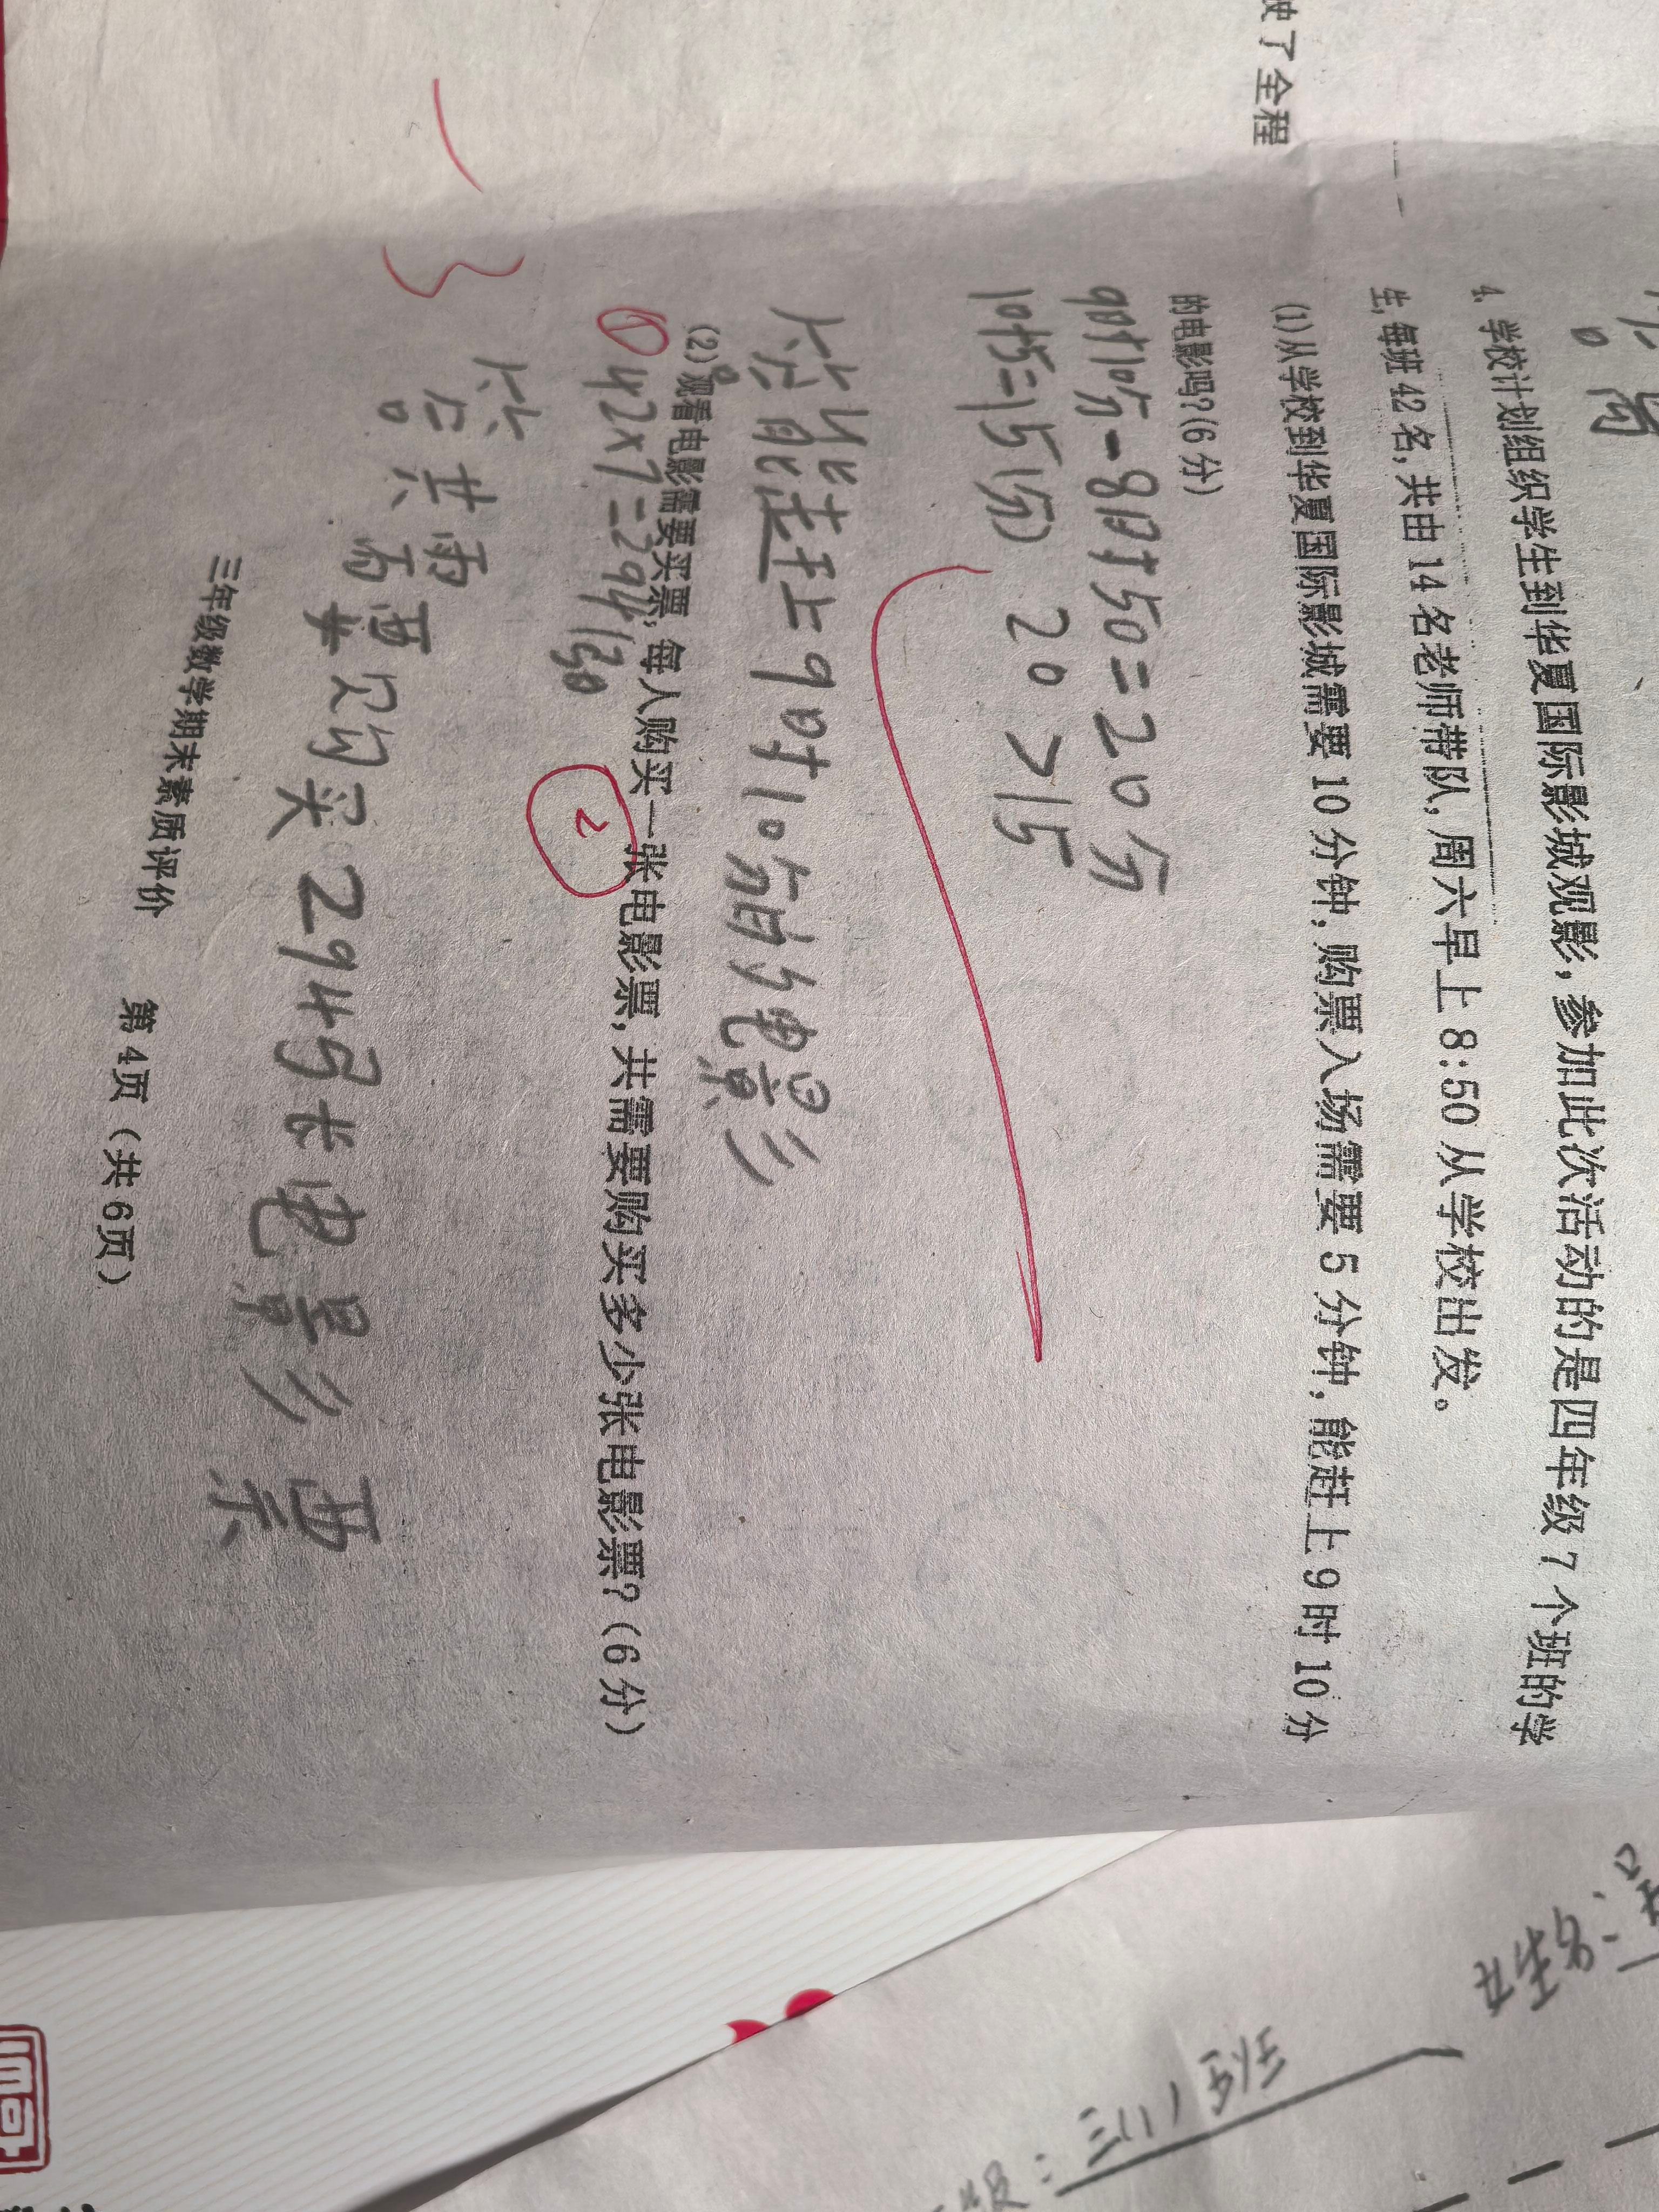 驶了全程
4. 学校计划组织学生到华夏国际影城观影，参加此次活动的是四年级7个班的学
生，每班42名，共由14名老师带队，周六早上8:50从学校出发。
(1)从学校到华夏国际影城需要10分钟，购票入场需要5分钟，能赶上9时10分
的电影吗？(6分)
9时10分-8时50=20分
10+5=15(分) 20>15
答能赶上9时10分的电影
(2)观看电影需要买票，每人购买一张电影票，共需要购买多少张电影票？(6分)
① 42×7=294(张)
2
答：共需要购买294张电影票
三年级数学期末素质评价 第4页（共6页）
姓名：
级：三(1)班